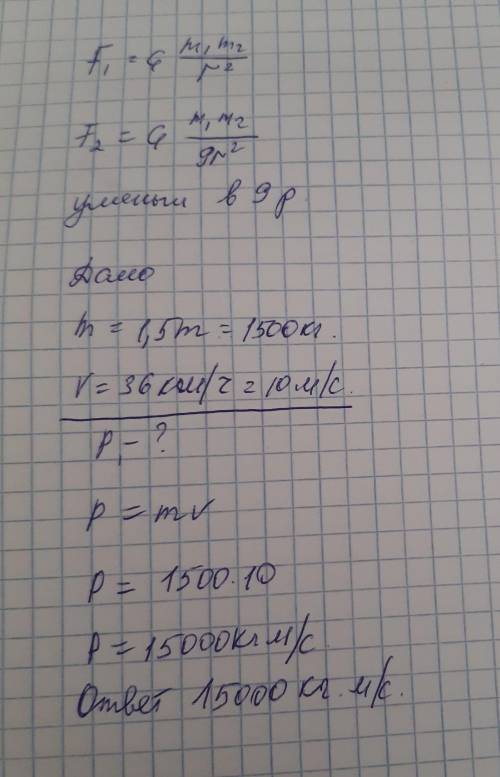 F₁ = G m₁m₂/r²
F₂ = G m₁m₂/9r²
уменьш в 9 р
Дано
m = 1,5т = 1500кг.
V = 36 км/ч = 10 м/с.
P₁ - ?
P = mv
P = 1500·10
P = 15000кг м/с
Ответ 15000 кг. м/с.